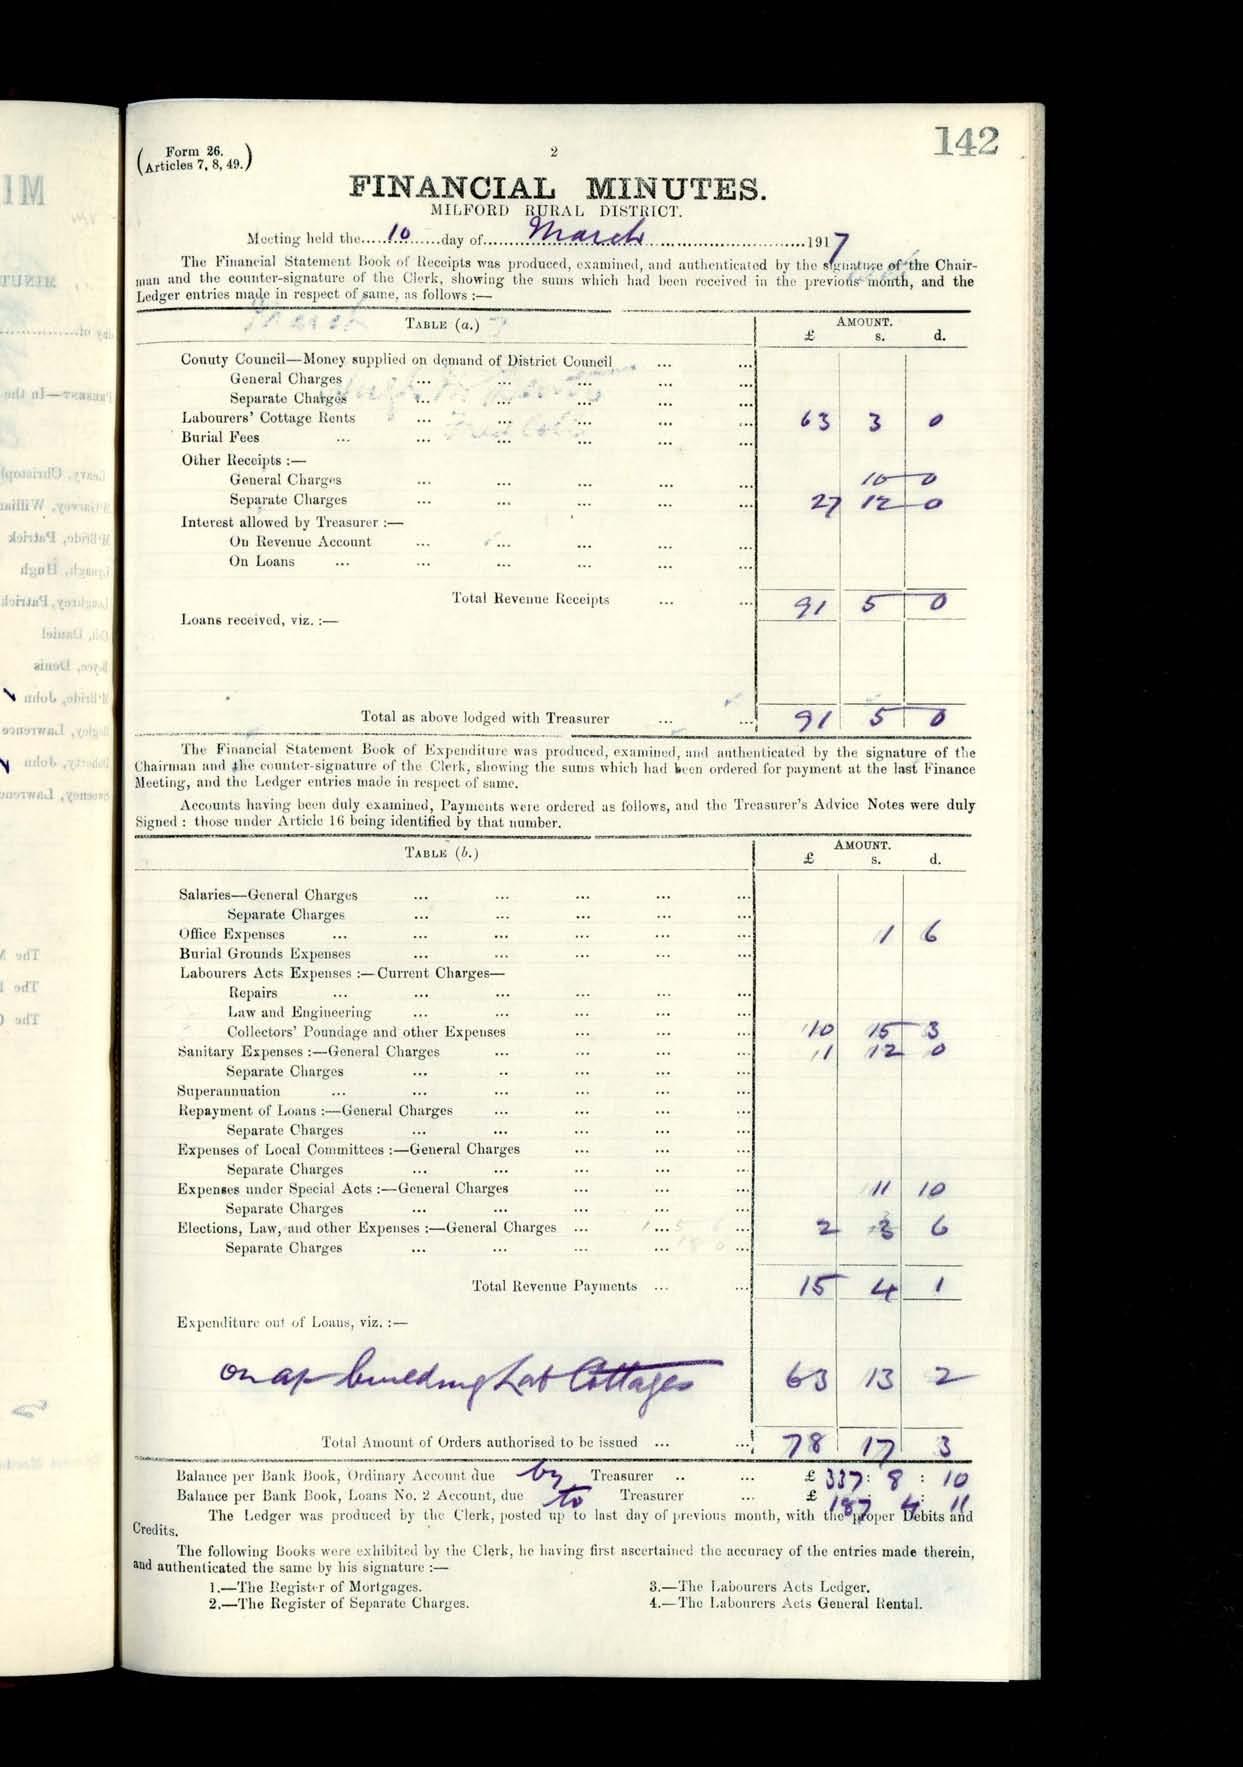 142
( Form 26. Articles 7, 8, 49. )
2
FINANCIAL MINUTES.
MILFORD RURAL DISTRICT.
Meeting held the.....10......day of.........March.............................1917
The Financial Statement Book of Receipts was produced, examined, and authenticated by the signature of the Chair-
man and the counter-signature of the Clerk, showing the sums which had been received in the previous month, and the
Ledger entries made in respect of same, as follows :—
TABLE (a.) AMOUNT.
£ s. d.
County Council—Money supplied on demand of District Council ... ...
General Charges ... ... ... ... ...
Separate Charges ... ... ... ... ...
Labourers' Cottage Rents ... ... ... ... ... 63 3 0
Burial Fees ... ... ... ... ... ...
Other Receipts :—
General Charges ... ... ... ... ... 10 0
Separate Charges ... ... ... ... ... 27 12 0
Interest allowed by Treasurer :—
On Revenue Account ... ... ... ... ...
On Loans ... ... ... ... ... ...
Total Revenue Receipts ... ... 91 5 0
Loans received, viz. :—
Total as above lodged with Treasurer ... ... 91 5 0
The Financial Statement Book of Expenditure was produced, examined, and authenticated by the signature of the
Chairman and the counter-signature of the Clerk, showing the sums which had been ordered for payment at the last Finance
Meeting, and the Ledger entries made in respect of same.
Accounts having been duly examined, Payments were ordered as follows, and the Treasurer's Advice Notes were duly
Signed : those under Article 16 being identified by that number.
TABLE (b.) AMOUNT.
£ s. d.
Salaries—General Charges ... ... ... ... ...
Separate Charges ... ... ... ... ...
Office Expenses ... ... ... ... ... ... 1 6
Burial Grounds Expenses ... ... ... ... ...
Labourers Acts Expenses :—Current Charges—
Repairs ... ... ... ... ... ...
Law and Engineering ... ... ... ... ...
Collectors' Poundage and other Expenses ... ... ... 10 15 3
Sanitary Expenses :—General Charges ... ... ... ... 11 12 0
Separate Charges ... .. ... ... ...
Superannuation ... ... ... ... ... ...
Repayment of Loans :—General Charges ... ... ... ...
Separate Charges ... ... ... ... ...
Expenses of Local Committees :—General Charges ... ... ...
Separate Charges ... ... ... ... ...
Expenses under Special Acts :—General Charges ... ... ... 11 10
Separate Charges ... ... ... ... ...
Elections, Law, and other Expenses :—General Charges ... ... ... 2 3 6
Separate Charges ... ... ... ... ...
Total Revenue Payments ... ... 15 4 1
Expenditure out of Loans, viz. :—
on a/c building Lab Cottages 63 13 2
Total Amount of Orders authorised to be issued ... ... 78 17 3
Balance per Bank Book, Ordinary Account due by Treasurer .. ... £ 337 : 8 : 10
Balance per Bank Book, Loans No. 2 Account, due to Treasurer ... £ 187 4 11
The Ledger was produced by the Clerk, posted up to last day of previous month, with the proper Debits and
Credits.
The following Books were exhibited by the Clerk, he having first ascertained the accuracy of the entries made therein,
and authenticated the same by his signature :—
1.—The Register of Mortgages. 3.—The Labourers Acts Ledger.
2.—The Register of Separate Charges. 4.—The Labourers Acts General Rental.